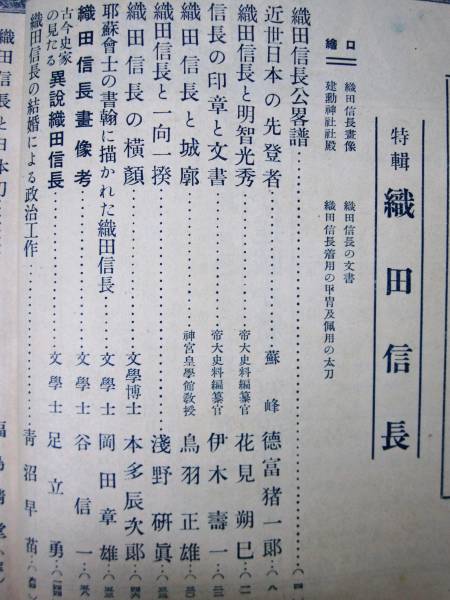 特輯 織田信長
口繪
織田信長畫像
建勳神社社殿
織田信長の文書
織田信長着用の甲冑及佩用の太刀
織田信長公略譜
近世日本の先登者 蘇峰 德富猪一郎
織田信長と明智光秀 帝大史料編纂官 花見朔巳
信長の印章と文書 帝大史料編纂官 伊木壽一
織田信長と城廓 神宮皇學館敎授 鳥羽正雄
織田信長と一向一揆 淺野研眞
織田信長の橫顏 文學博士 本多辰次郎
耶蘇會士の書翰に描かれた織田信長 文學士 岡田章雄
織田信長畫像考 文學士 谷信一
古今史家の見たる 異說織田信長 文學士 足立勇
織田信長の結婚による政治工作 靑沼早苗
織田信長と日本刀